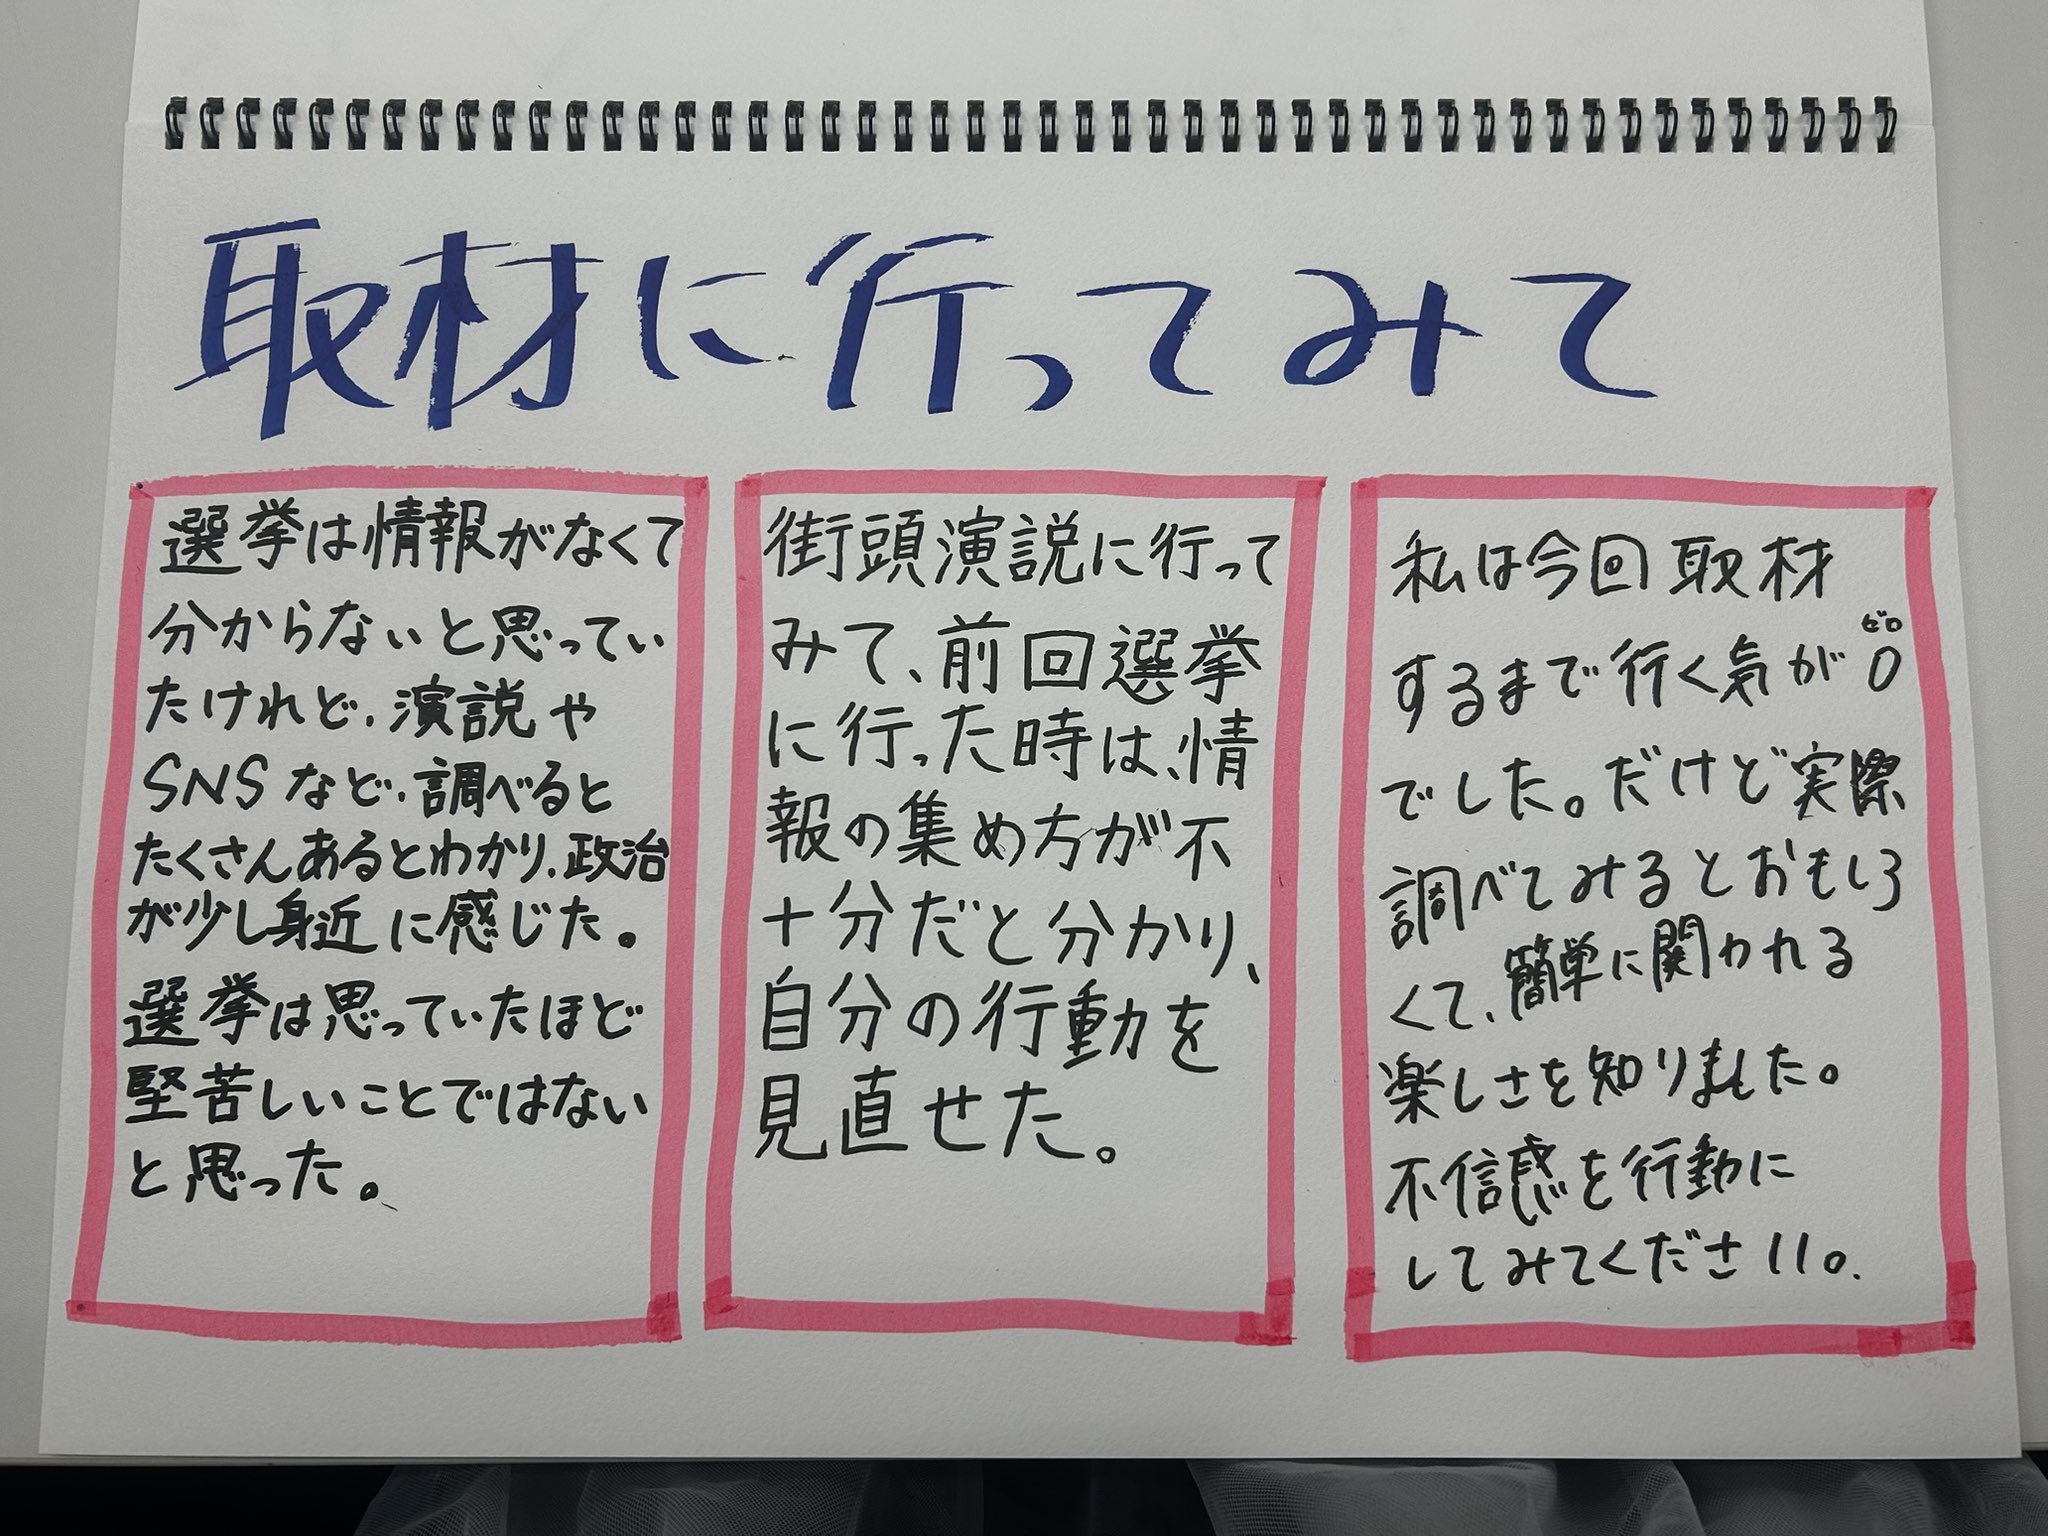 取材に行ってみて
選挙は情報がなくて
分からないと思ってい
たけれど、演説や
SNSなど、調べると
たくさんあるとわかり、政治
が少し身近に感じた。
選挙は思っていたほど
堅苦しいことではない
と思った。
街頭演説に行って
みて、前回選挙
に行った時は、情
報の集め方が不
十分だと分かり、
自分の行動を
見直せた。
私は今回取材
ゼロ
するまで行く気が0
でした。だけど実際
調べてみるとおもしろ
くて、簡単に関われる
楽しさを知りました。
不信感を行動に
してみてください。